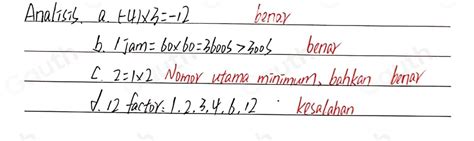 Analisis. a. (-4)×3=-12 benar
b. 1 jam=60×60=3600s>300s benar
c. 2=1×2 Nomor utama minimum, bahkan benar
d. 12 factor: 1.2.3.4.6.12 kesalahan